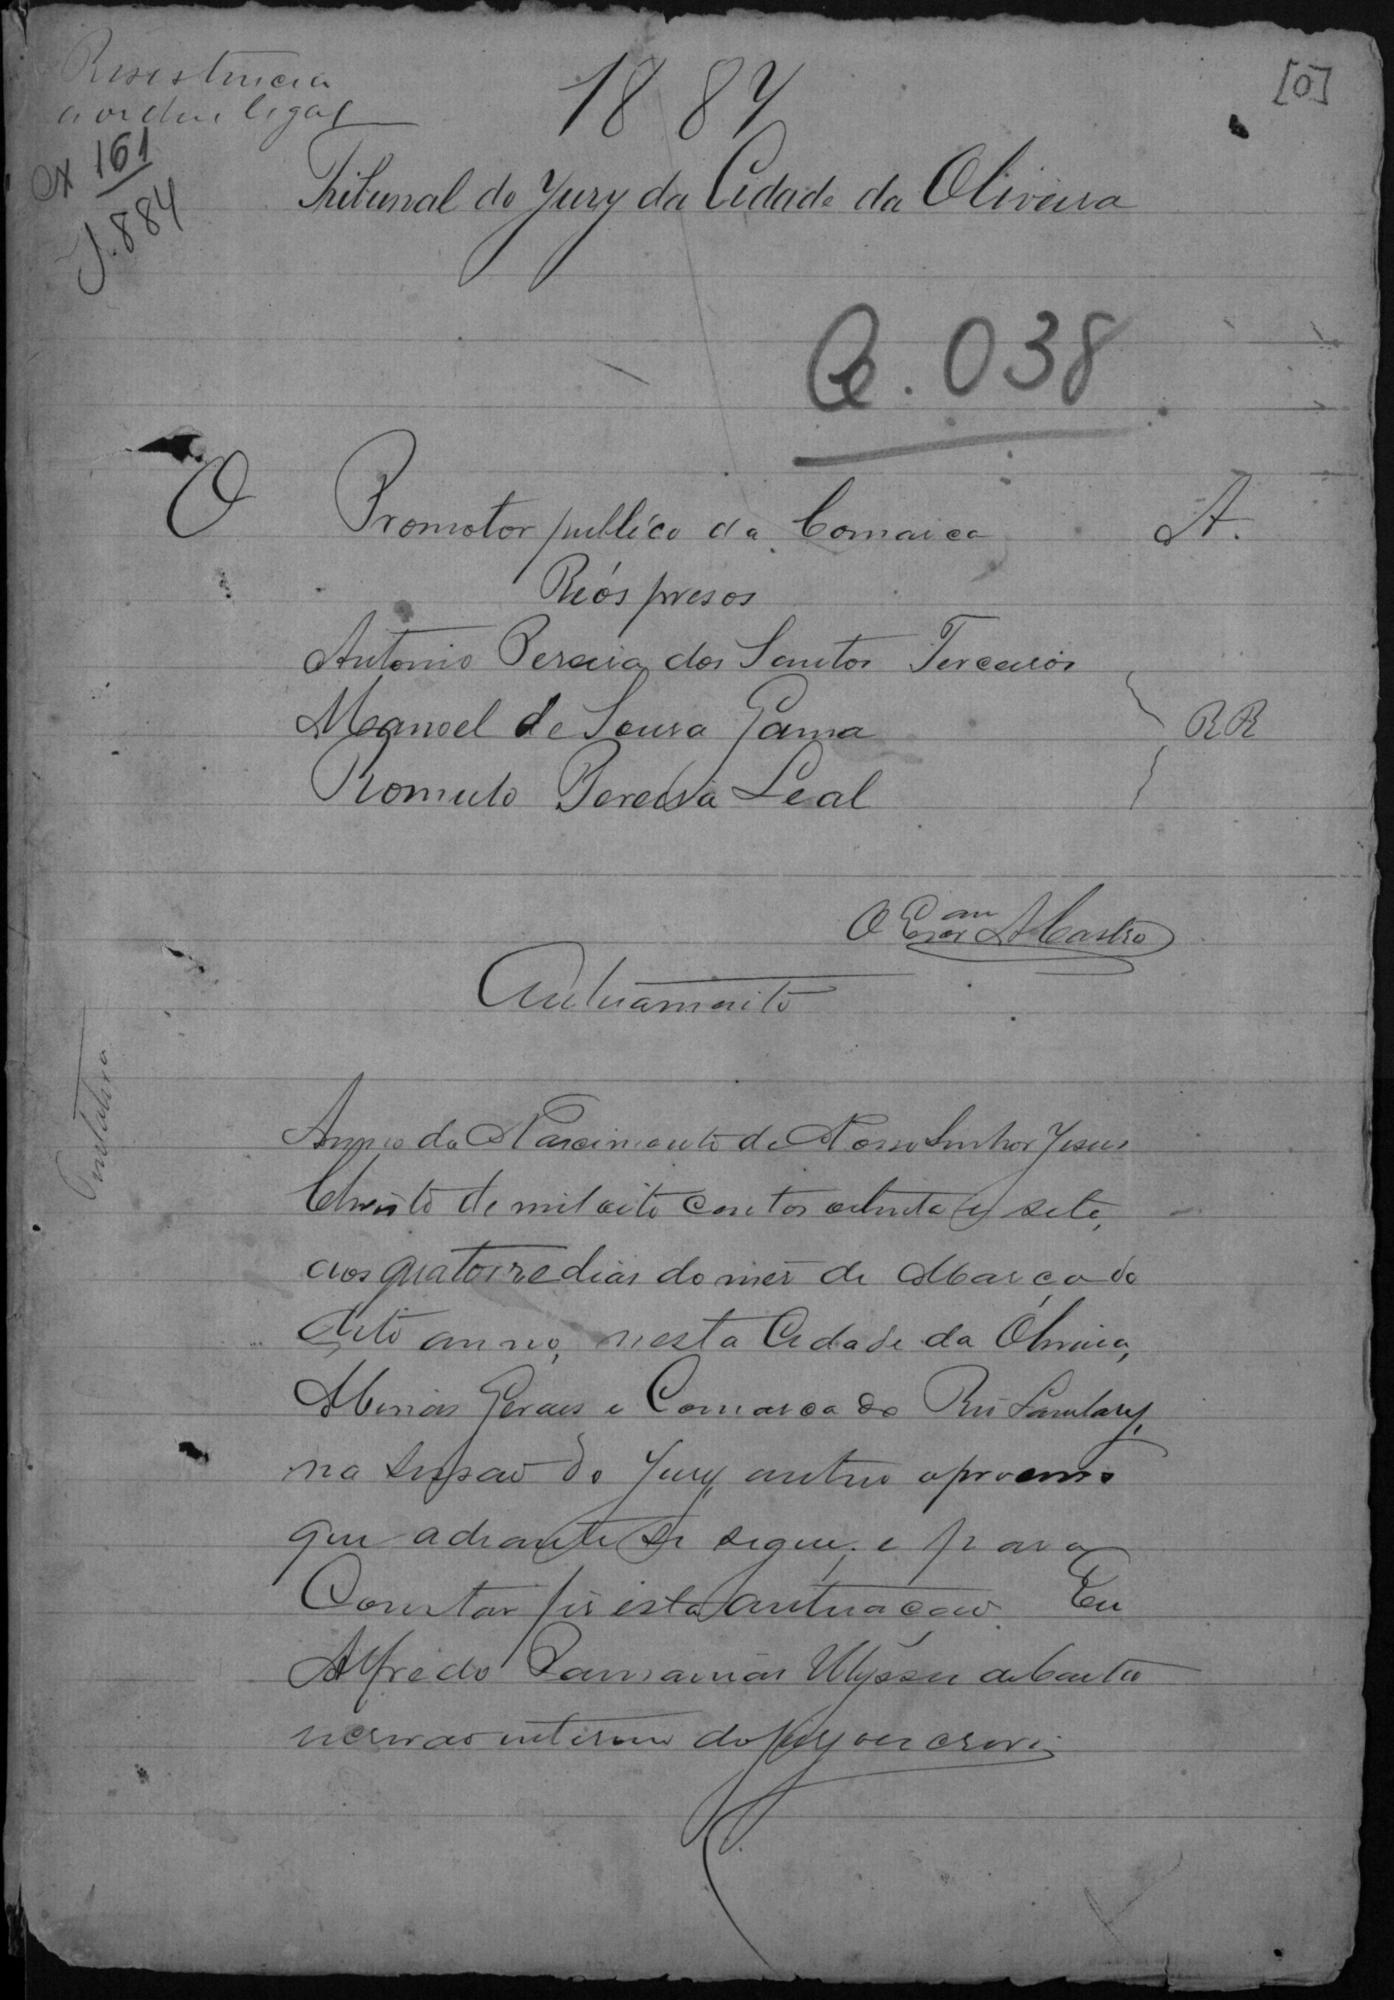 Resistencia
a ordem legal
1887
[0]
CX 161
J.884
Tribunal do Jury da Cidade da Oliveira
Ce. 038
O Promotor publico da Comarca A.
Réos presos
Antonio Pereira dos Santos Terceiros
Manoel de Sousa Gama
RR
Romulo Pereira Leal
O Esam ACastro
Autuamento
Anno do Nascimento de Nosso Senhor Jesus
Christo de mil oito centos oitenta e sete,
aos quatorze dias do mes de Março do
dito anno, nesta Cidade da Oliveira,
Minas Geraes e Comarca do Rio Lambary,
na sessão do Jury, autuo o processo
que adiante se segue; e para
Constar fis esta autuação. Eu
Alfredo Ulysses de Castro
escrivão interino do jury o escrevi